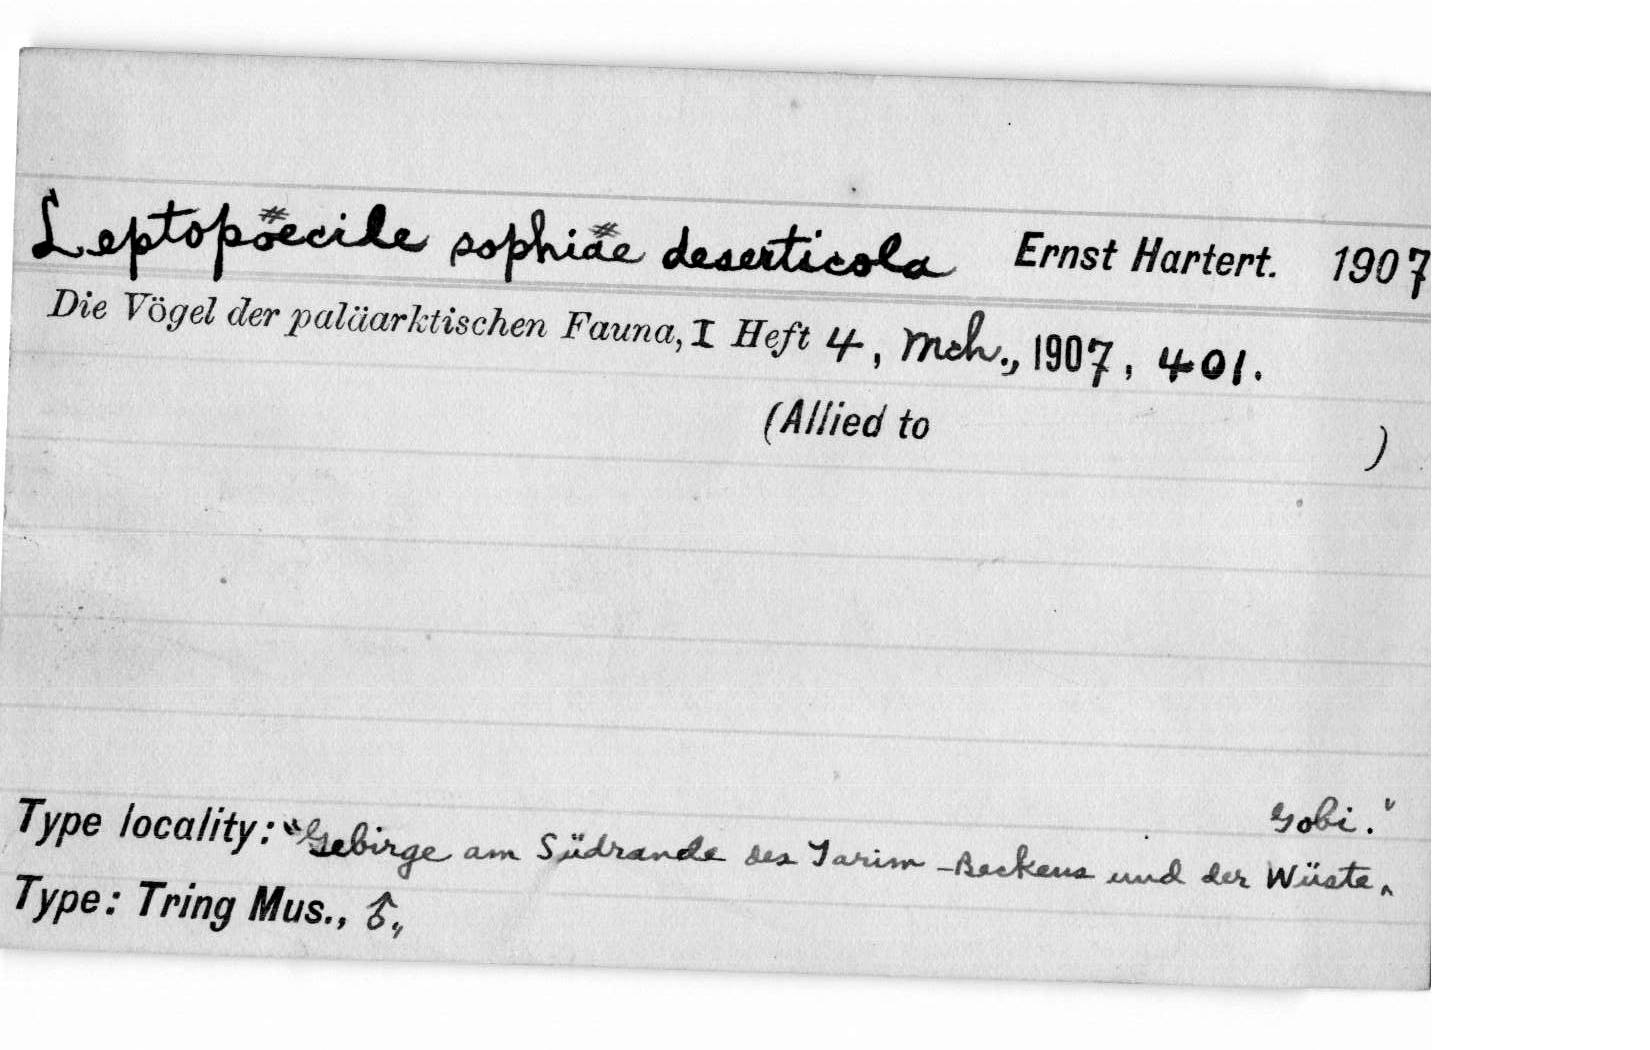 Leptopöecile sophiäe deserticola Ernst Hartert. 1907
Die Vögel der paläarktischen Fauna, I Heft 4, Mch., 1907, 401.
(Allied to )
Gobi."
Type locality: "Gebirge am Südrande des Tarim-Beckens und der Wüste ‸
Type: Tring Mus., ♂,,